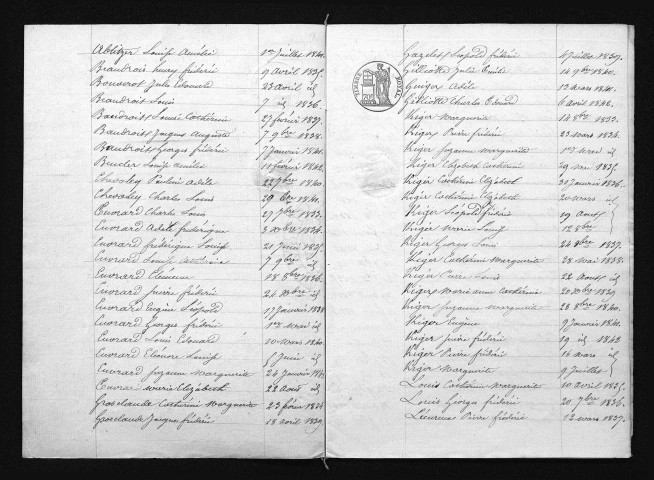 Ablitzer Louise Amélie 1er Juillet 1840.
Beaudrois henry frédéric 9 avril 1835.
Bouverot Jules Edouard 23 avril id
Beaudrois Louis 7 id 1836.
Baudroit Louise Catherine 27 février 1837.
Baudroit Jacques Auguste 7 9bre 1838.
Baudroit Georges frédéric 7 Janvier 1840.
Bucler Louise Amélie 11 février 1842.
Chevoley Pauline Adèle 22 7bre 1840.
Chevoley Charles Louis 29 8bre 1841.
Euvrard Charles Louis 27 7bre 1833.
Euvrard Adèle frédérique 3 Xbre 1834.
Euvrard frédérique Louise 21 Juin 1835.
Euvrard Louise 7 9bre id
Euvrard Eléonore 18 8bre 1836.
Euvrard pierre frédéric 24 Xbre id
Euvrard Eugène Léopold 17 Janvier 1838
Euvrard Georges frédéric 1er mai id
Euvrard Louis Edouard 10 mars 1840.
Euvrard Eléonore Louise 5 Juin id
Euvrard Suzanne Marguerite 24 Janvier 1842
Euvrard marie Elizabeth 22 août id
Grosclaude Catherine Marguerite 23 février 1834
Grosclaude Jacques frédéric 18 avril 1839.
TIMBRE ROYAL
Gazelet Léopold frédéric 4 Juillet 1839.
Gilliotte Julie Emilie 14 9bre 1840.
Guiger Adèle 13 mars 1841.
Gilliotte Charles Edouard 6 avril 1842.
Kiger Marguerite 14 8bre 1833.
Kiger Pierre frédéric 23 mars 1834.
Kiger Suzanne Marguerite 1er mai id
Kiger Elizabeth Catherine 29 mai 1835.
Kiger Catherine Elizabeth 30 Janvier 1836.
Kiger Catherine Elizabeth 20 mars id
Kiger Léopold frédéric 19 Août
Kiger Marie Louise 12 8bre
Kiger Georges Louis 24 8bre 1837.
Kiger Catherine Marguerite 28 Mai 1838.
Kiger Pierre Louis 22 Août id
Kiger Marie anne Catherine 20 Xbre 1839
Kiger Suzanne Marguerite 28 8bre 1840.
Kiger Eugène 9 Janvier 1841.
Kiger pierre frédéric 19 id 1842
Kiger Pierre frédéric 16 mars id
Kiger Marguerite 9 Juillet
Louis Catherine Marguerite 10 avril 1835.
Louis Georges frédéric 20 7bre 1836.
Lécureux Pierre frédéric 12 mars 1837.